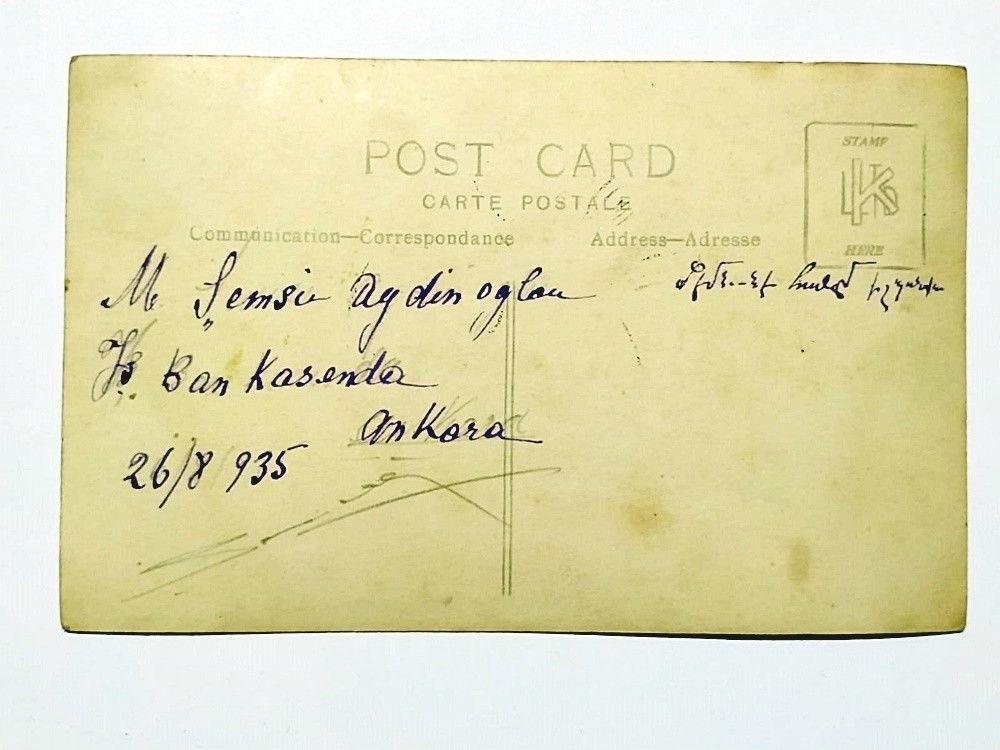 POST CARD
CARTE POSTALE
Communication—Correspondance
Address—Adresse
STAMP
HERE
M Şemsi Aydinoglou
İş Bankasenda
Ankara
26/8 935